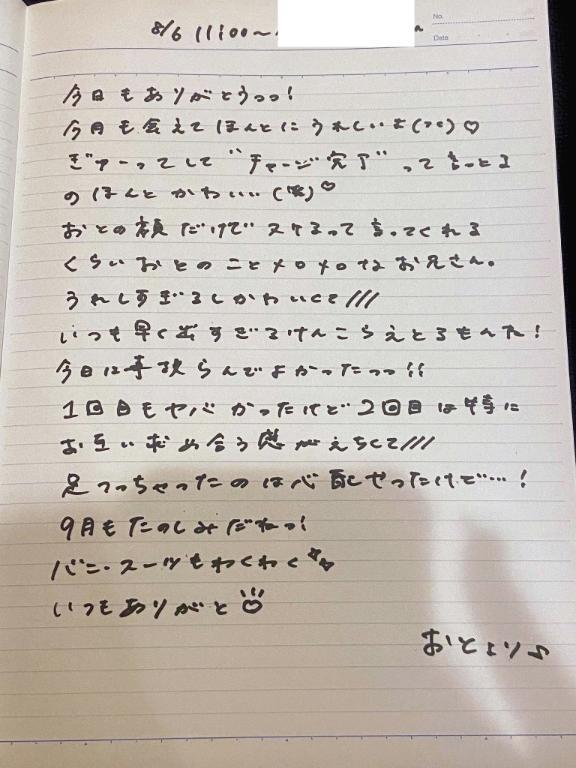 8/6 11:00〜
No.
Date
今日もありがとうっっ!
今月も会えてほんとにうれしいよ(>~<)♡
ぎァーってして“チャージ完了”って言っとる
のほんとかわいい(笑)♡
おとの顔だけでヌけるって言ってくれる
くらいおとのことメロメロなお兄さん。
うれしすぎるしかわいくて///
いつも早く出すぎるけんこらえとるもんな!
今日は我慢らんでよかったっっ!!
1回目もヤバかったけど2回目は特に
お互い求め合う感がえちくて///
足つっちゃったのは心配やったけど…!
9月もたのしみだねっ!
バニースーツもわくわく
いつもありがと♡
おとより♪